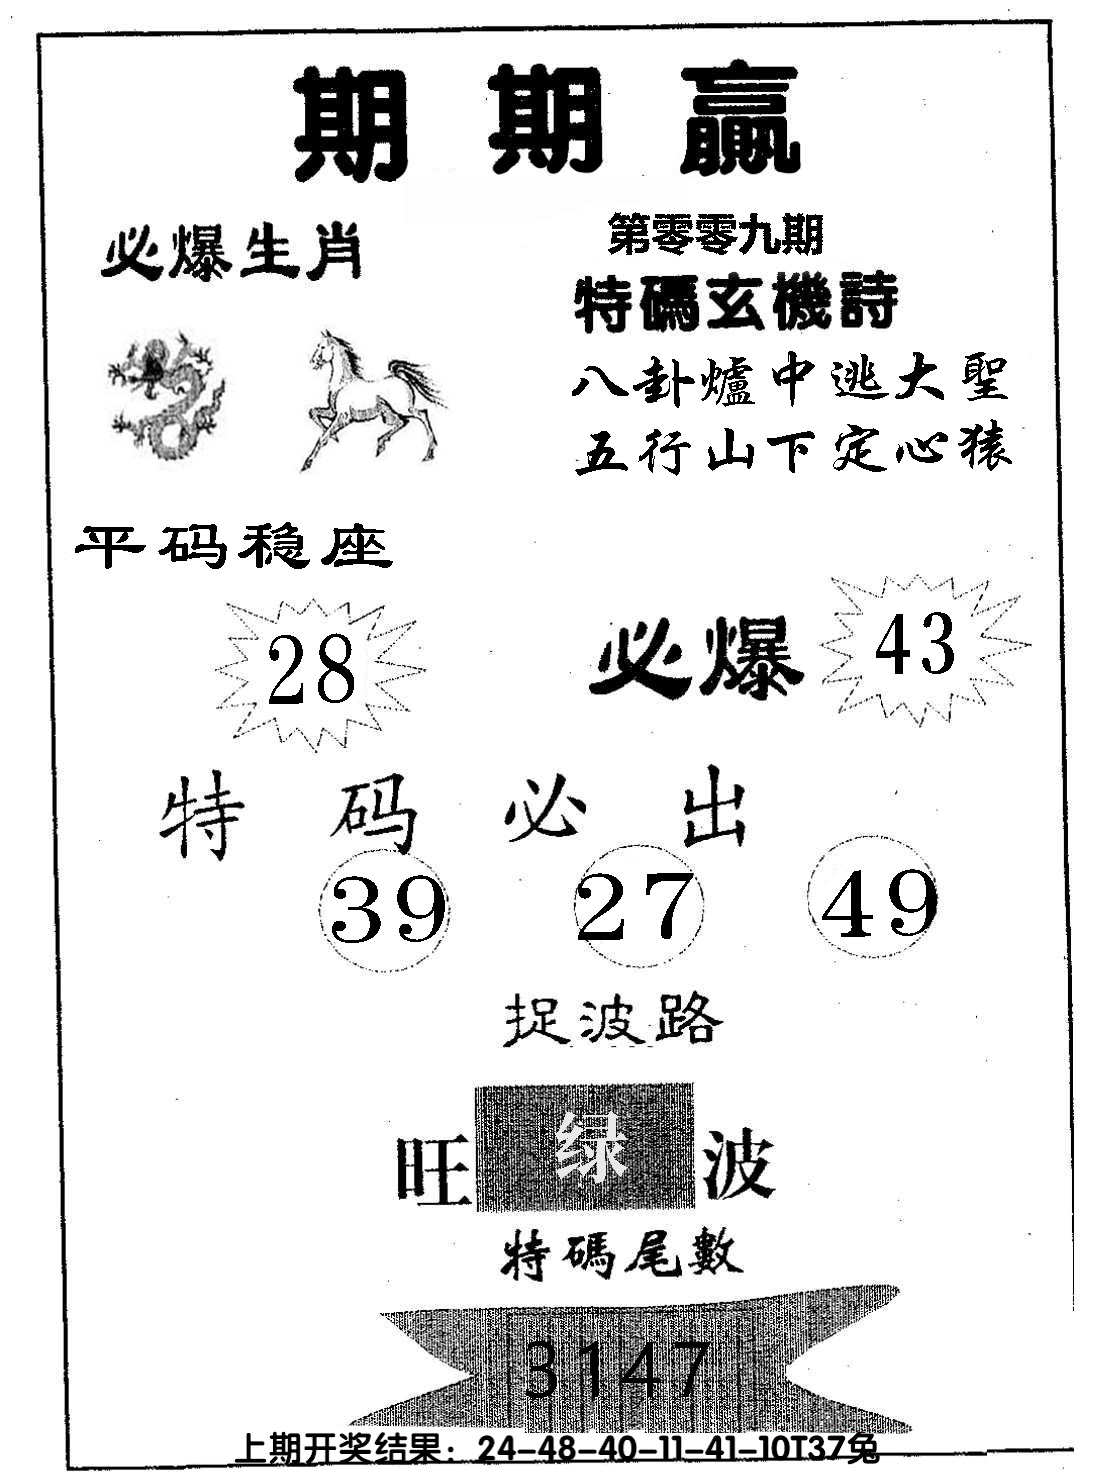 期期贏
必爆生肖
第零零九期
特碼玄機詩
八卦爐中逃大聖
五行山下定心猿
平码稳座
28
必爆 43
特码必出
39 27 49
捉波路
旺 绿 波
特碼尾數
3147
上期开奖结果：24-48-40-11-41-10T37兔